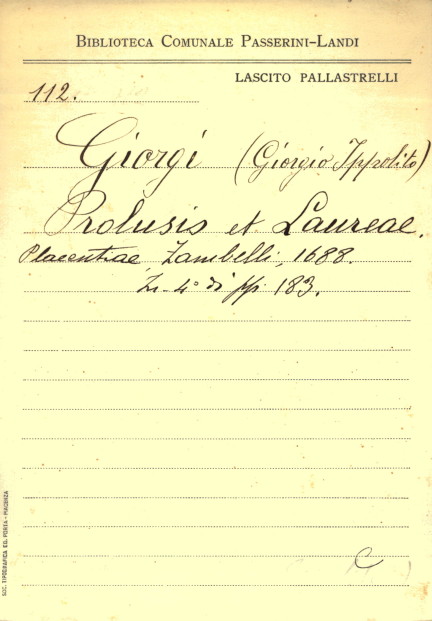 BIBLIOTECA COMUNALE PASSERINI-LANDI
LASCITO PALLASTRELLI
112.
Giorgi (Giorgio Ippolito)
Prolusis et Laureae.
Placentiae, Zambelli, 1688.
In-4° di pp. 183.
C
SOC. TIPOGRAFICA ED. PORTA - PIACENZA